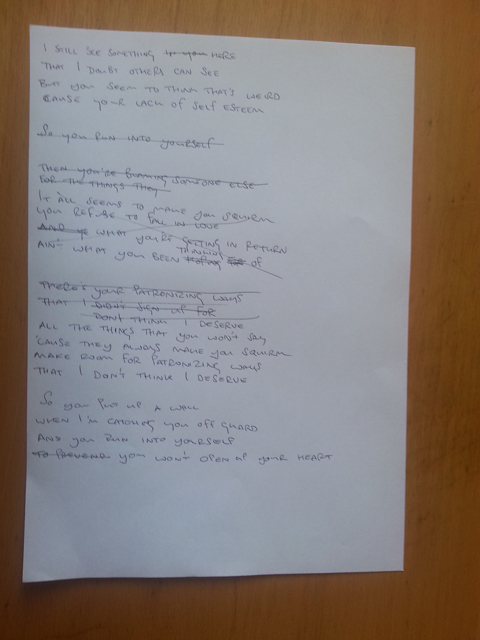 I STILL SEE SOMETHING IN YOU HERE
THAT I DOUBT OTHERS CAN SEE
BUT YOU SEEM TO THINK THAT'S WEIRD
CAUSE YOUR LACK OF SELF ESTEEM
SO YOU RUN INTO YOURSELF
THEN YOU'RE BLAMING SOMEONE ELSE
FOR THE THINGS THEY
IT ALL SEEMS TO MAKE YOU SQUIRM
YOU REFUSE TO FALL IN LOVE
AND WHAT YOU'RE GETTING IN RETURN
THINKING
AIN'T WHAT YOU BEEN OF
THERE'S YOUR PATRONIZING WAYS
THAT I DIDN'T SIGN UP FOR
DON'T THINK I DESERVE
ALL THE THINGS THAT YOU WON'T SAY
'CAUSE THEY ALWAYS MAKE YOU SQUIRM
MAKE ROOM FOR PATRONIZING WAYS
THAT I DON'T THINK I DESERVE
SO YOU PUT UP A WALL
WHEN I'M CATCHING YOU OFF GUARD
AND YOU RUN INTO YOURSELF
TO PREVENT YOU WON'T OPEN UP YOUR HEART